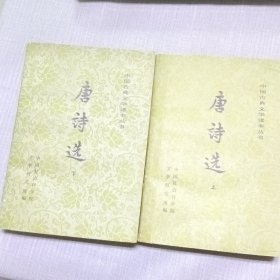 中国古典文学读本丛书
唐诗选
下
中国社会科学院
文学研究所编
中国古典文学读本丛书
唐诗选
上
中国社会科学院
文学研究所编